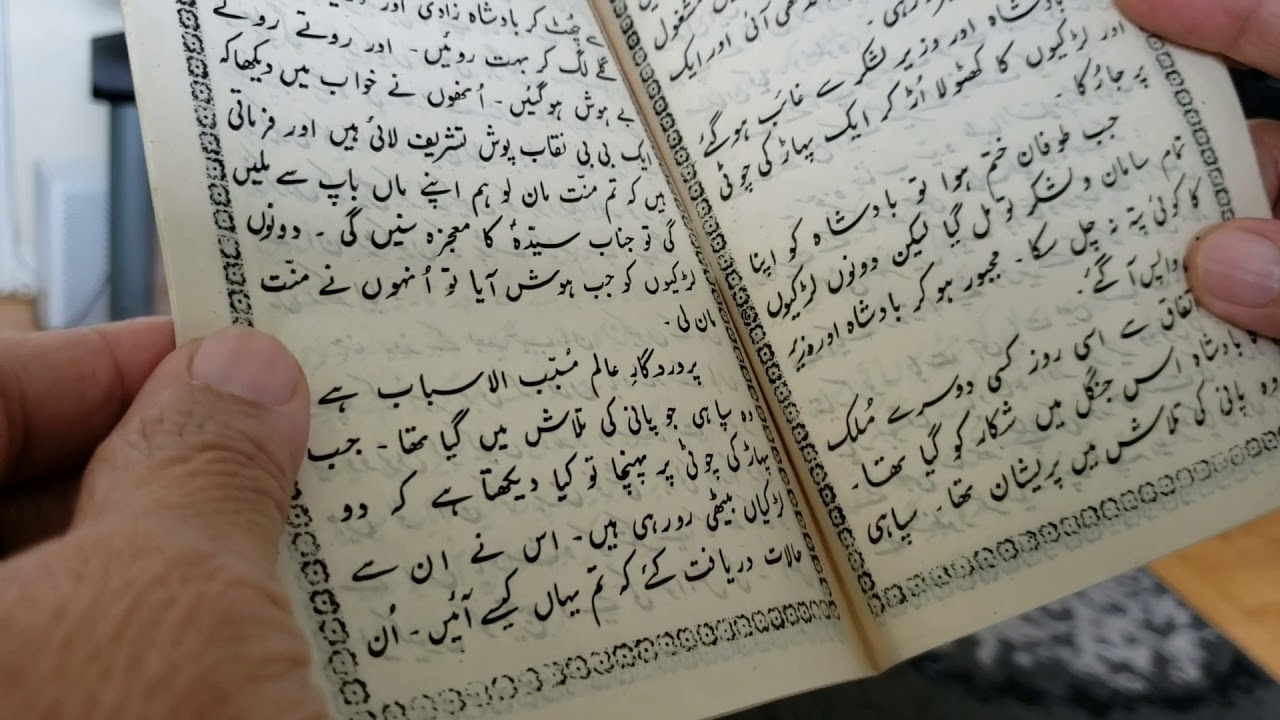 مشغول
آئی اور ایک
بادشاہ اور وزیر لشکر سے غائب ہوگئے
اور لڑکیوں کا کھٹولا اُڑ کر ایک پہاڑ کی چوٹی
پر جا رُکا ۔
جب طوفان ختم ہوا تو بادشاہ کو اپنا
تمام سامان و لشکر تو مل گیا لیکن دونوں لڑکیوں
کا کوئی پتہ نہ چل سکا ۔ مجبور ہو کر بادشاہ اور وزیر
واپس آ گئے ۔
اتفاق سے اسی روز کسی دوسرے مُلک
کا بادشاہ اس جنگل میں شکار کو گیا تھا ۔
وہ پانی کی تلاش میں پریشان تھا ۔ سپاہی
چُھٹ کر بادشاہ زادی اور
گلے لگ کر بہت روئیں ۔ اور روتے روتے
بے ہوش ہوگئیں ۔ اُنھوں نے خواب میں دیکھا کہ
ایک بی بی نقاب پوش تشریف لائی ہیں اور فرماتی
ہیں کہ تم منّت مان لو ہم اپنے ماں باپ سے ملیں
گی تو جناب سیّدہؑ کا معجزہ سنیں گی ۔ دونوں
لڑکیوں کو جب ہوش آیا تو اُنہوں نے منّت
مان لی ۔
پروردگارِ عالم مُسبّب الاسباب ہے
وہ سپاہی جو پانی کی تلاش میں گیا تھا ۔ جب
پہاڑ کی چوٹی پر پہنچا تو کیا دیکھتا ہے کہ دو
لڑکیاں بیٹھی رو رہی ہیں ۔ اس نے ان سے
حالات دریافت کئے کہ تم یہاں کیسے آئیں ۔ اُن